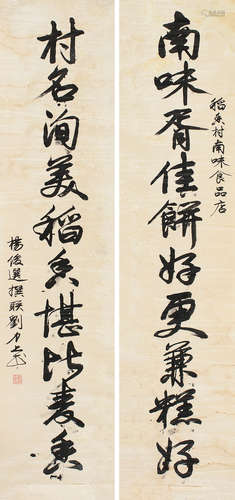 南味胥佳餅好更兼糕好
稻香村南味食品店
村名洵美稻香堪比麦香
楊俊選撰联劉